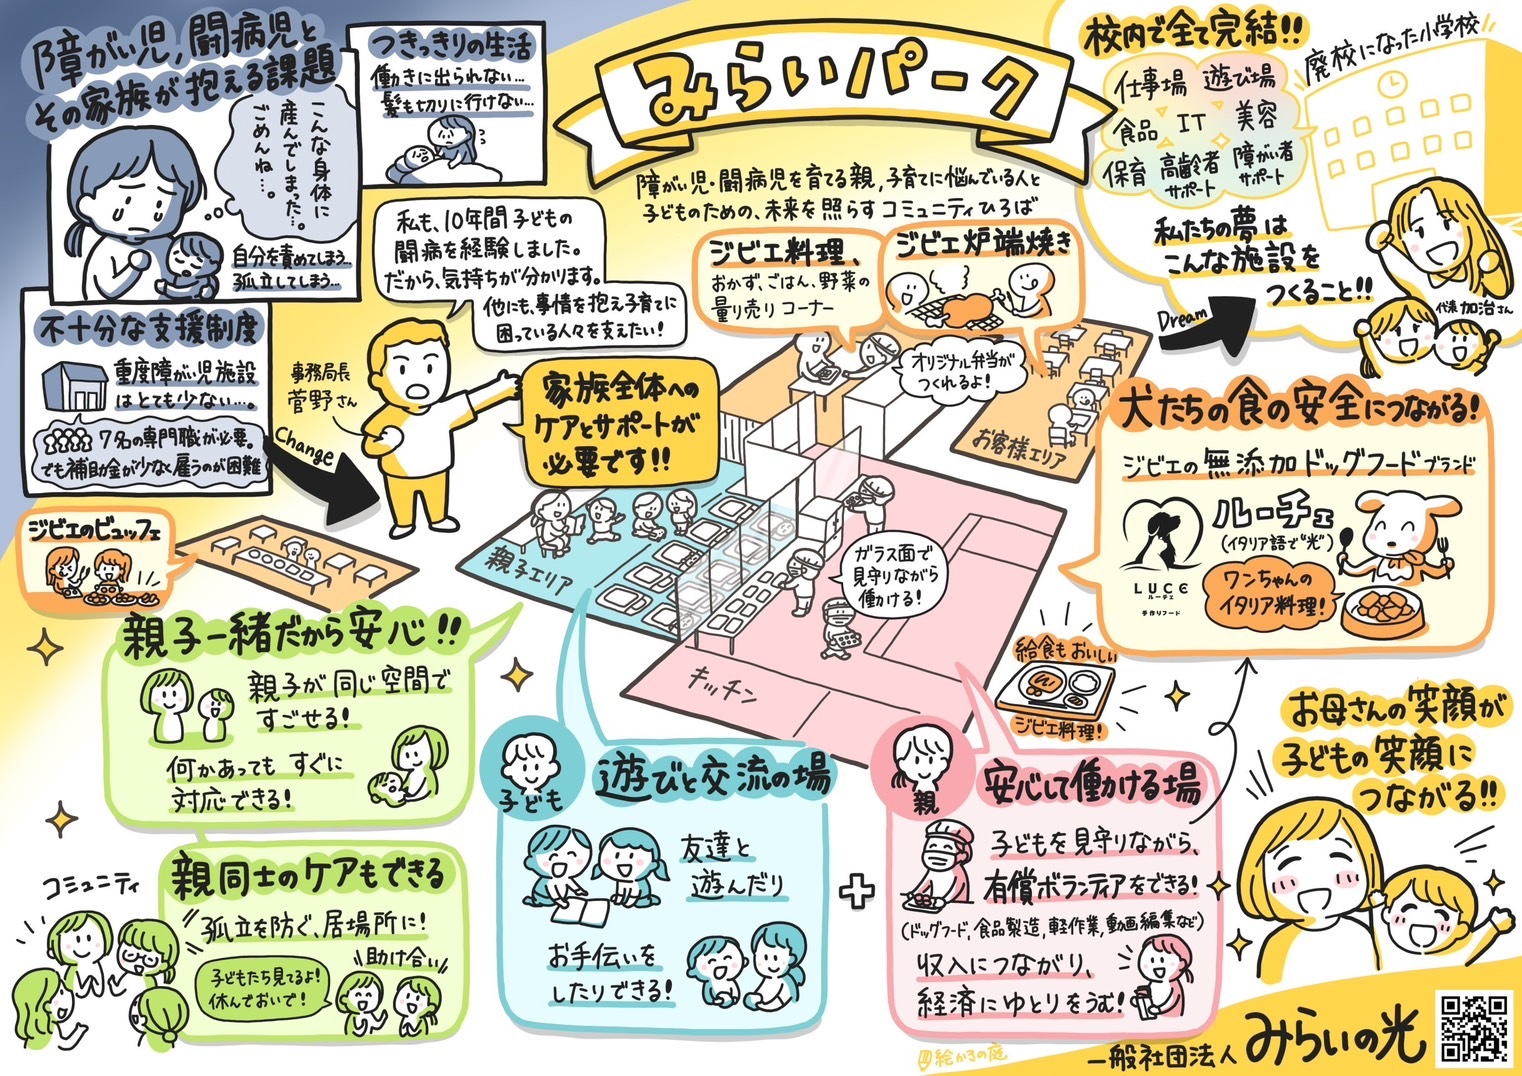 障がい児,闘病児と
その家族が抱える課題
こんな身体に
産んでしまった。
ごめんね…。
自分を責めてしまう…
孤立してしまう…
つきっきりの生活
働きに出られない…
髪も切りに行けない…
不十分な支援制度
重度障がい児施設
はとても少ない…。
7名の専門職が必要。
でも補助金が少なく雇うのが困難
Change
私も、10年間子どもの
闘病を経験しました。
だから、気持ちが分かります。
他にも、事情を抱え子育てに
困っている人々を支えたい!
事務局長
菅野さん
家族全体への
ケアとサポートが
必要です!!
みらいパーク
障がい児・闘病児を育てる親,子育てに悩んでいる人と
子どものための、未来を照らすコミュニティひろば
ジビエ料理、
おかず、ごはん、野菜の
量り売りコーナー
ジビエ炉端焼き
オリジナル弁当が
つくれるよ!
お客様エリア
親子エリア
ガラス面で
見守りながら
働ける!
キッチン
給食もおいしい
ジビエ料理!
校内で全て完結!!
廃校になった小学校
仕事場 遊び場
食品 IT 美容
保育 高齢者サポート 障がい者サポート
私たちの夢は
こんな施設を
つくること!!
Dream
代表 加治さん
犬たちの食の安全につながる!
ジビエの無添加ドッグフードブランド
ルーチェ
(イタリア語で"光")
LUCE
ルーチェ
手作りフード
ワンちゃんの
イタリア料理!
ジビエのビュッフェ
親子一緒だから安心!!
親子が同じ空間で
すごせる!
何かあってもすぐに
対応できる!
親同士のケアもできる
コミュニティ
孤立を防ぐ、居場所に!
助け合い
子どもたち見てるよ!
休んでおいで!
子ども
遊びと交流の場
友達と
遊んだり
お手伝いを
したりできる!
+
親
安心して働ける場
子どもを見守りながら、
有償ボランティアをできる!
(ドッグフード,食品製造,軽作業,動画編集など)
収入につながり、
経済にゆとりをうむ!
お母さんの笑顔が
子どもの笑顔に
つながる!!
絵かきの庭
一般社団法人 みらいの光